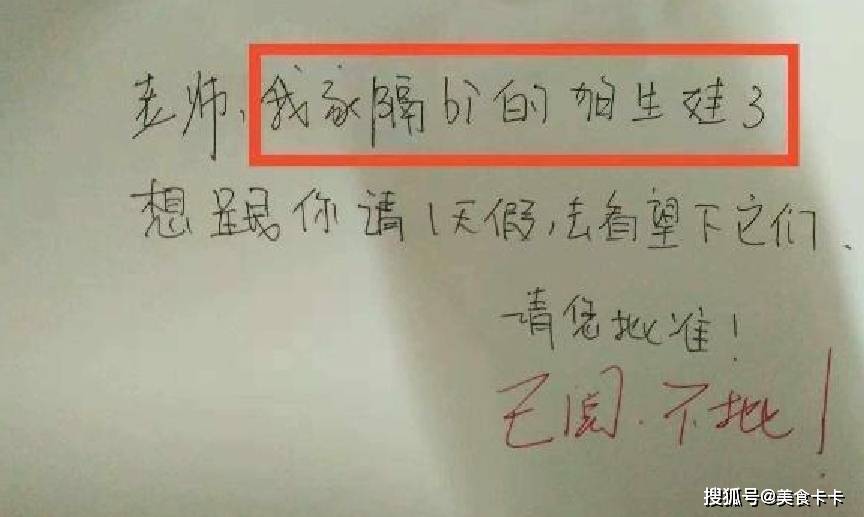 老师、我家隔bi的狗生娃了
想跟你请1天假,去看望下它们、
请您批准!
已阅.不批!
搜狐号@美食卡卡